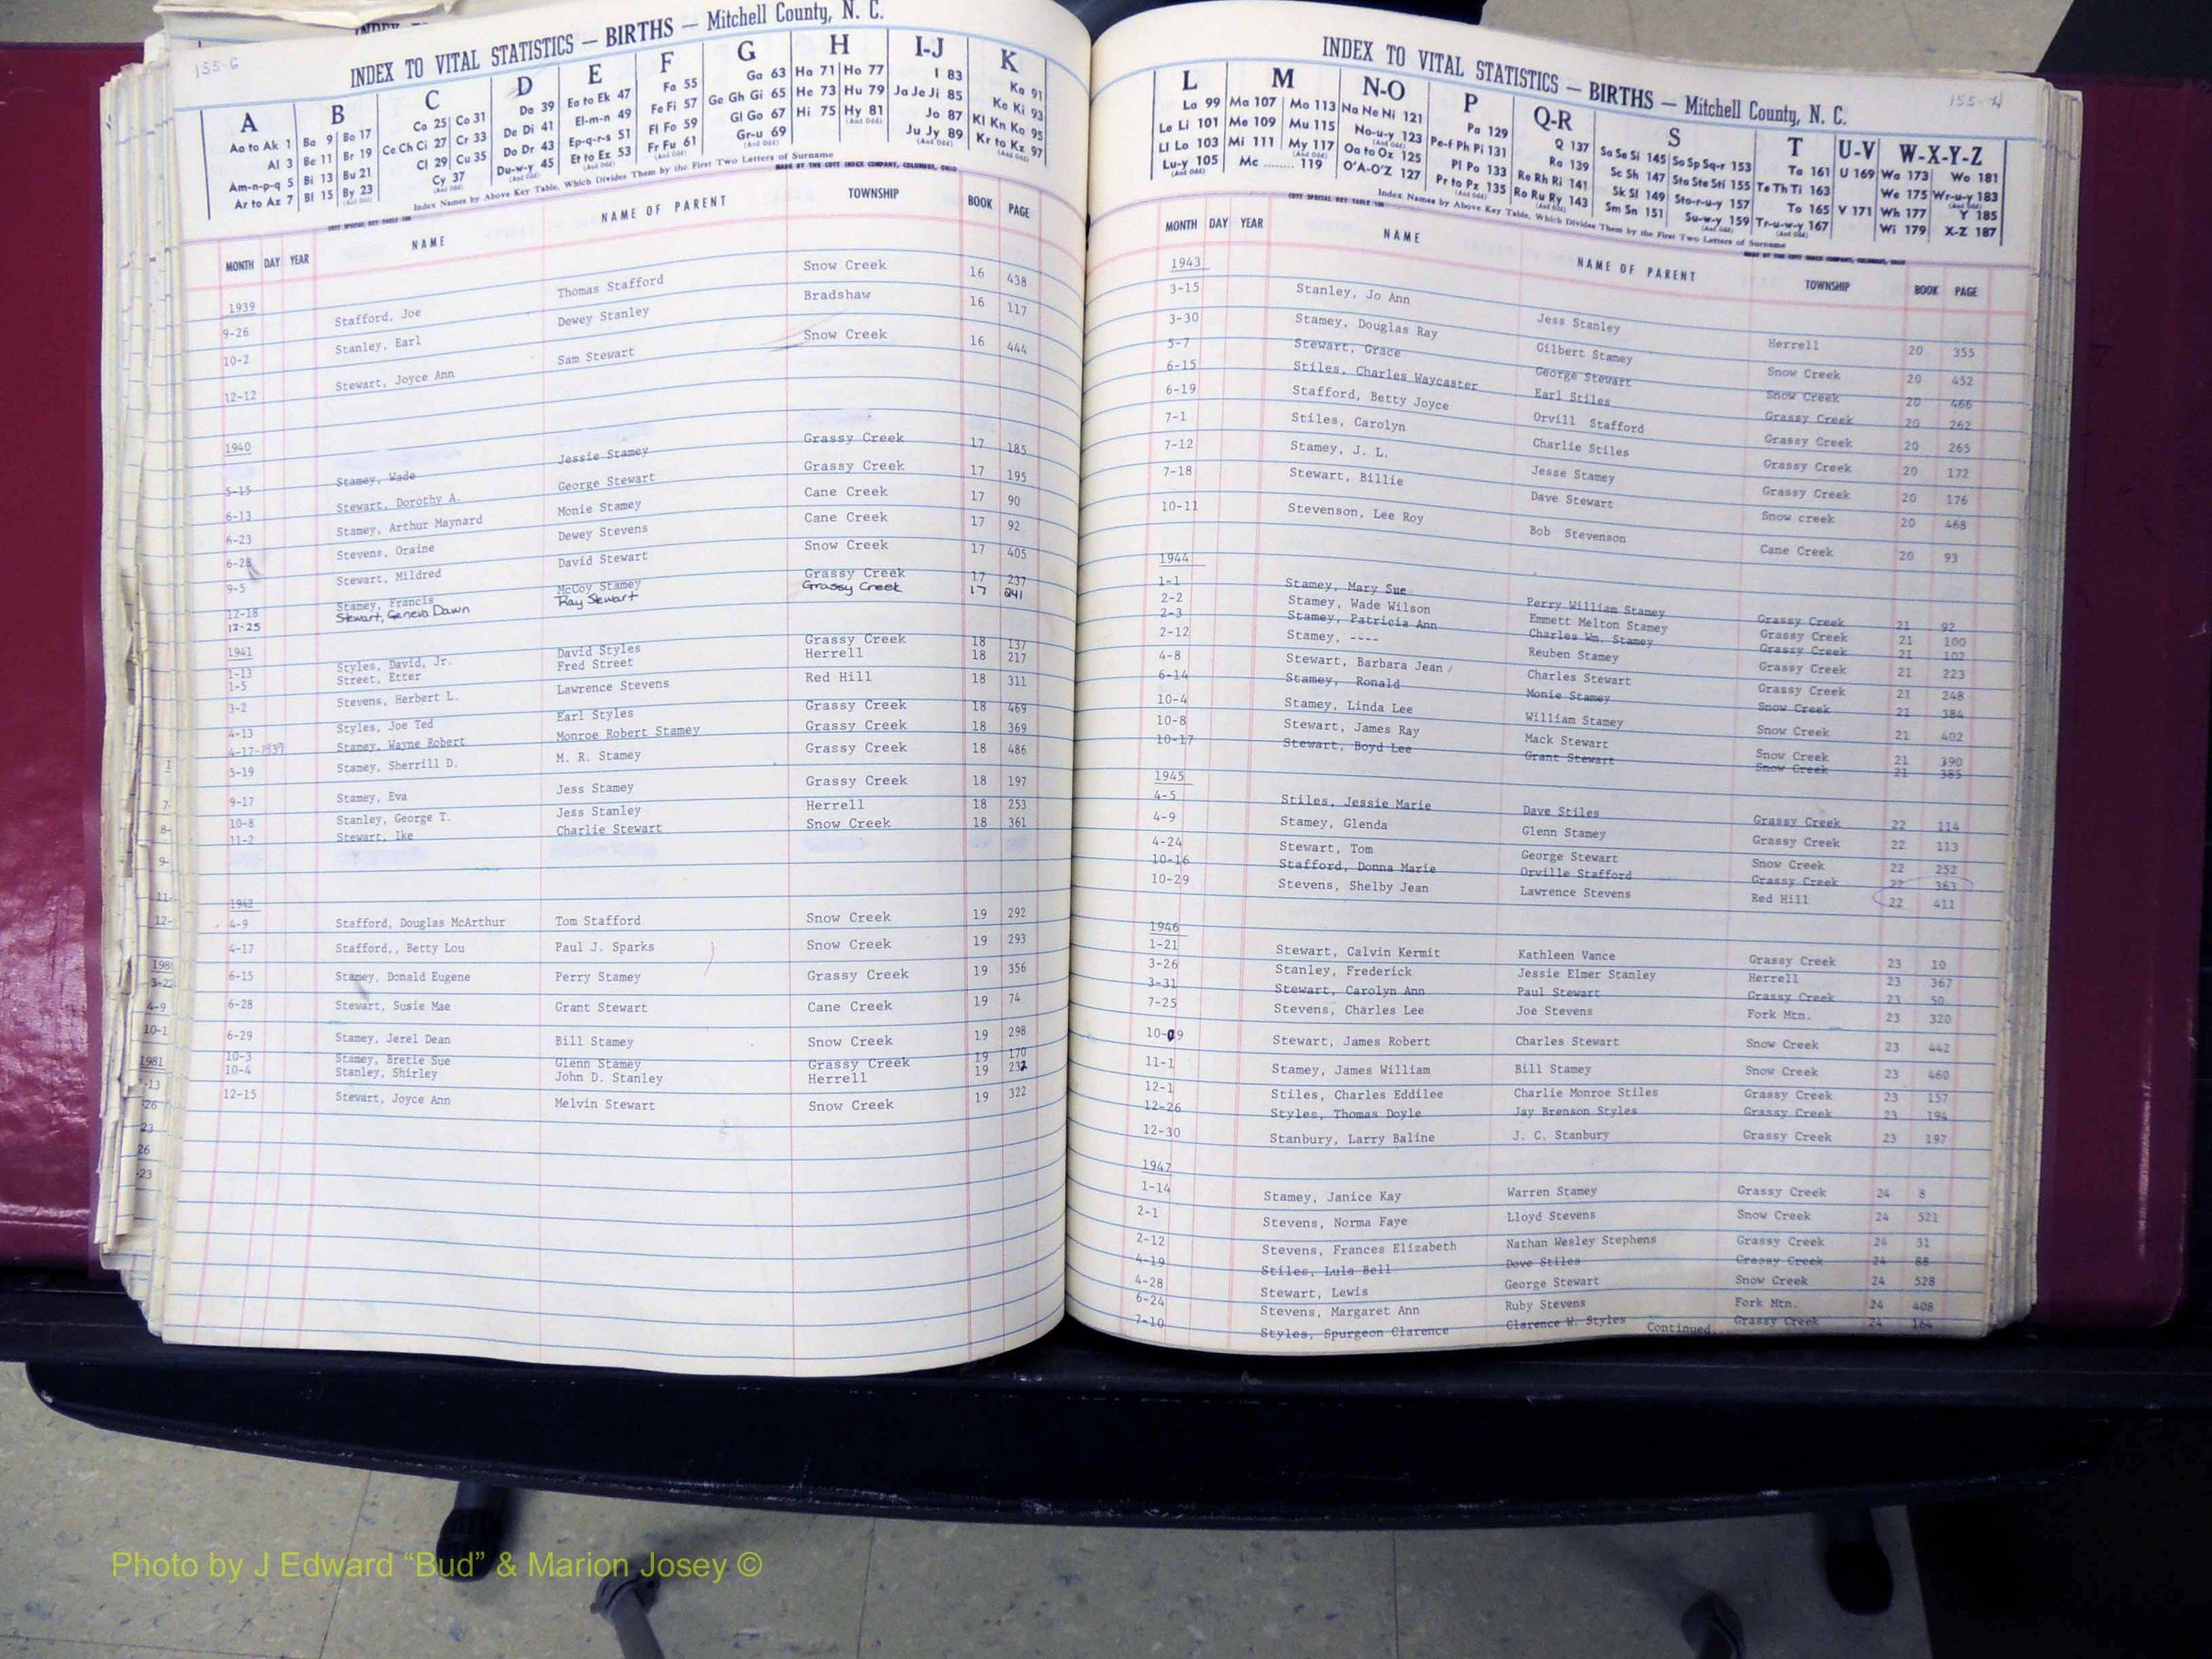 155-G
INDEX TO VITAL STATISTICS — BIRTHS — Mitchell County, N. C.
A B C D E F G H I-J K
Aa to Ak 1 Ba 9 Bo 17 Ca 25 Co 31 Da 39 Ea to Ek 47 Fa 55 Ga 63 Ha 71 Ho 77 I 83 Ka 91
Al 3 Be 11 Br 19 Ce Ch Ci 27 Cr 33 De Di 41 El-m-n 49 Fe Fi 57 Ge Gh Gi 65 He 73 Hu 79 Ja Je Ji 85 Ke Ki 93
Am-n-p-q 5 Bi 13 Bu 21 Cl 29 Cu 35 Do Dr 43 Ep-q-r-s 51 Fl Fo 59 Gl Go 67 Hi 75 Hy 81 Jo 87 Kl Kn Ko 95
Ar to Az 7 Bl 15 By 23 Cy 37 Du-w-y 45 Et to Ex 53 Fr Fu 61 Gr-u 69 Ju Jy 89 Kr to Kz 97
Index Names by Above Key Table, Which Divides Them by the First Two Letters of Surname
MADE BY THE COTT INDEX COMPANY, COLUMBUS, OHIO
MONTH DAY YEAR NAME NAME OF PARENT TOWNSHIP BOOK PAGE
1939
9-26 Stafford, Joe Thomas Stafford Snow Creek 16 438
10-2 Stanley, Earl Dewey Stanley Bradshaw 16 117
12-12 Stewart, Joyce Ann Sam Stewart Snow Creek 16 444
1940
5-15 Stamey, Wade Jessie Stamey Grassy Creek 17 185
6-13 Stewart, Dorothy A. George Stewart Grassy Creek 17 195
6-23 Stamey, Arthur Maynard Monie Stamey Cane Creek 17 90
6-28 Stevens, Oraine Dewey Stevens Cane Creek 17 92
9-5 Stewart, Mildred David Stewart Snow Creek 17 405
12-18 Stamey, Francis McCoy Stamey Grassy Creek 17 237
12-25 Stewart, Geneva Dawn Ray Stewart Grassy Creek 17 241
1941
1-13 Styles, David, Jr. David Styles Grassy Creek 18 137
1-5 Street, Etter Fred Street Herrell 18 217
3-2 Stevens, Herbert L. Lawrence Stevens Red Hill 18 311
4-13 Styles, Joe Ted Earl Styles Grassy Creek 18 469
4-17-1937 Stamey, Wayne Robert Monroe Robert Stamey Grassy Creek 18 369
5-19 Stamey, Sherrill D. M. R. Stamey Grassy Creek 18 486
9-17 Stamey, Eva Jess Stamey Grassy Creek 18 197
10-8 Stanley, George T. Jess Stanley Herrell 18 253
11-2 Stewart, Ike Charlie Stewart Snow Creek 18 361
1942
4-9 Stafford, Douglas McArthur Tom Stafford Snow Creek 19 292
4-17 Stafford,, Betty Lou Paul J. Sparks Snow Creek 19 293
6-15 Stamey, Donald Eugene Perry Stamey Grassy Creek 19 356
6-28 Stewart, Susie Mae Grant Stewart Cane Creek 19 74
6-29 Stamey, Jerel Dean Bill Stamey Snow Creek 19 298
10-3 Stamey, Bretie Sue Glenn Stamey Grassy Creek 19 170
10-4 Stanley, Shirley John D. Stanley Herrell 19 232
12-15 Stewart, Joyce Ann Melvin Stewart Snow Creek 19 322
155-H
INDEX TO VITAL STATISTICS — BIRTHS — Mitchell County, N. C.
L M N-O P Q-R S T U-V W-X-Y-Z
La 99 Ma 107 Mo 113 Na Ne Ni 121 Pa 129 Q 137 Sa Se Si 145 So Sp Sq-r 153 Ta 161 U 169 Wa 173 Wo 181
Le Li 101 Me 109 Mu 115 No-u-y 123 Pe-f Ph Pi 131 Ra 139 Sc Sh 147 Sta Ste Sti 155 Te Th Ti 163 We 175 Wr-u-y 183
Ll Lo 103 Mi 111 My 117 Oa to Oz 125 Pl Po 133 Re Rh Ri 141 Sk Sl 149 Sto-r-u-y 157 To 165 V 171 Wh 177 Y 185
Lu-y 105 Mc ........ 119 O'A-O'Z 127 Pr to Pz 135 Ro Ru Ry 143 Sm Sn 151 Su-w-y 159 Tr-u-w-y 167 Wi 179 X-Z 187
Index Names by Above Key Table, Which Divides Them by the First Two Letters of Surname
MADE BY THE COTT INDEX COMPANY, COLUMBUS, OHIO
MONTH DAY YEAR NAME NAME OF PARENT TOWNSHIP BOOK PAGE
1943
3-15 Stanley, Jo Ann Jess Stanley Herrell 20 355
3-30 Stamey, Douglas Ray Gilbert Stamey Snow Creek 20 452
5-7 Stewart, Grace George Stewart Snow Creek 20 466
6-15 Stiles, Charles Waycaster Earl Stiles Grassy Creek 20 262
6-19 Stafford, Betty Joyce Orvill Stafford Grassy Creek 20 265
7-1 Stiles, Carolyn Charlie Stiles Grassy Creek 20 172
7-12 Stamey, J. L. Jesse Stamey Grassy Creek 20 176
7-18 Stewart, Billie Dave Stewart Snow creek 20 468
10-11 Stevenson, Lee Roy Bob Stevenson Cane Creek 20 93
1944
1-1 Stamey, Mary Sue Perry William Stamey Grassy Creek 21 92
2-2 Stamey, Wade Wilson Emmett Melton Stamey Grassy Creek 21 100
2-3 Stamey, Patricia Ann Charles Wm. Stamey Grassy Creek 21 102
2-12 Stamey, ---- Reuben Stamey Grassy Creek 21 223
4-8 Stewart, Barbara Jean Charles Stewart Grassy Creek 21 248
6-14 Stamey, Ronald Monie Stamey Snow Creek 21 384
10-4 Stamey, Linda Lee William Stamey Snow Creek 21 402
10-8 Stewart, James Ray Mack Stewart Snow Creek 21 390
10-17 Stewart, Boyd Lee Grant Stewart Snow Creek 21 385
1945
4-5 Stiles, Jessie Marie Dave Stiles Grassy Creek 22 114
4-9 Stamey, Glenda Glenn Stamey Grassy Creek 22 113
4-24 Stewart, Tom George Stewart Snow Creek 22 252
10-16 Stafford, Donna Marie Orville Stafford Grassy Creek 22 363
10-29 Stevens, Shelby Jean Lawrence Stevens Red Hill 22 411
1946
1-21 Stewart, Calvin Kermit Kathleen Vance Grassy Creek 23 10
3-26 Stanley, Frederick Jessie Elmer Stanley Herrell 23 367
3-31 Stewart, Carolyn Ann Paul Stewart Grassy Creek 23 50
7-25 Stevens, Charles Lee Joe Stevens Fork Mtn. 23 320
10-09 Stewart, James Robert Charles Stewart Snow Creek 23 442
11-1 Stamey, James William Bill Stamey Snow Creek 23 460
12-1 Stiles, Charles Eddilee Charlie Monroe Stiles Grassy Creek 23 157
12-26 Styles, Thomas Doyle Jay Brenson Styles Grassy Creek 23 194
12-30 Stanbury, Larry Baline J. C. Stanbury Grassy Creek 23 197
1947
1-14 Stamey, Janice Kay Warren Stamey Grassy Creek 24 8
2-1 Stevens, Norma Faye Lloyd Stevens Snow Creek 24 521
2-12 Stevens, Frances Elizabeth Nathan Wesley Stephens Grassy Creek 24 31
4-19 Stiles, Lula Bell Dove Stiles Grassy Creek 24 88
4-28 Stewart, Lewis George Stewart Snow Creek 24 528
6-24 Stevens, Margaret Ann Ruby Stevens Fork Mtn. 24 408
7-10 Styles, Spurgeon Clarence Clarence W. Styles Grassy Creek 24 164
Continued..
Photo by J Edward “Bud” & Marion Josey ©